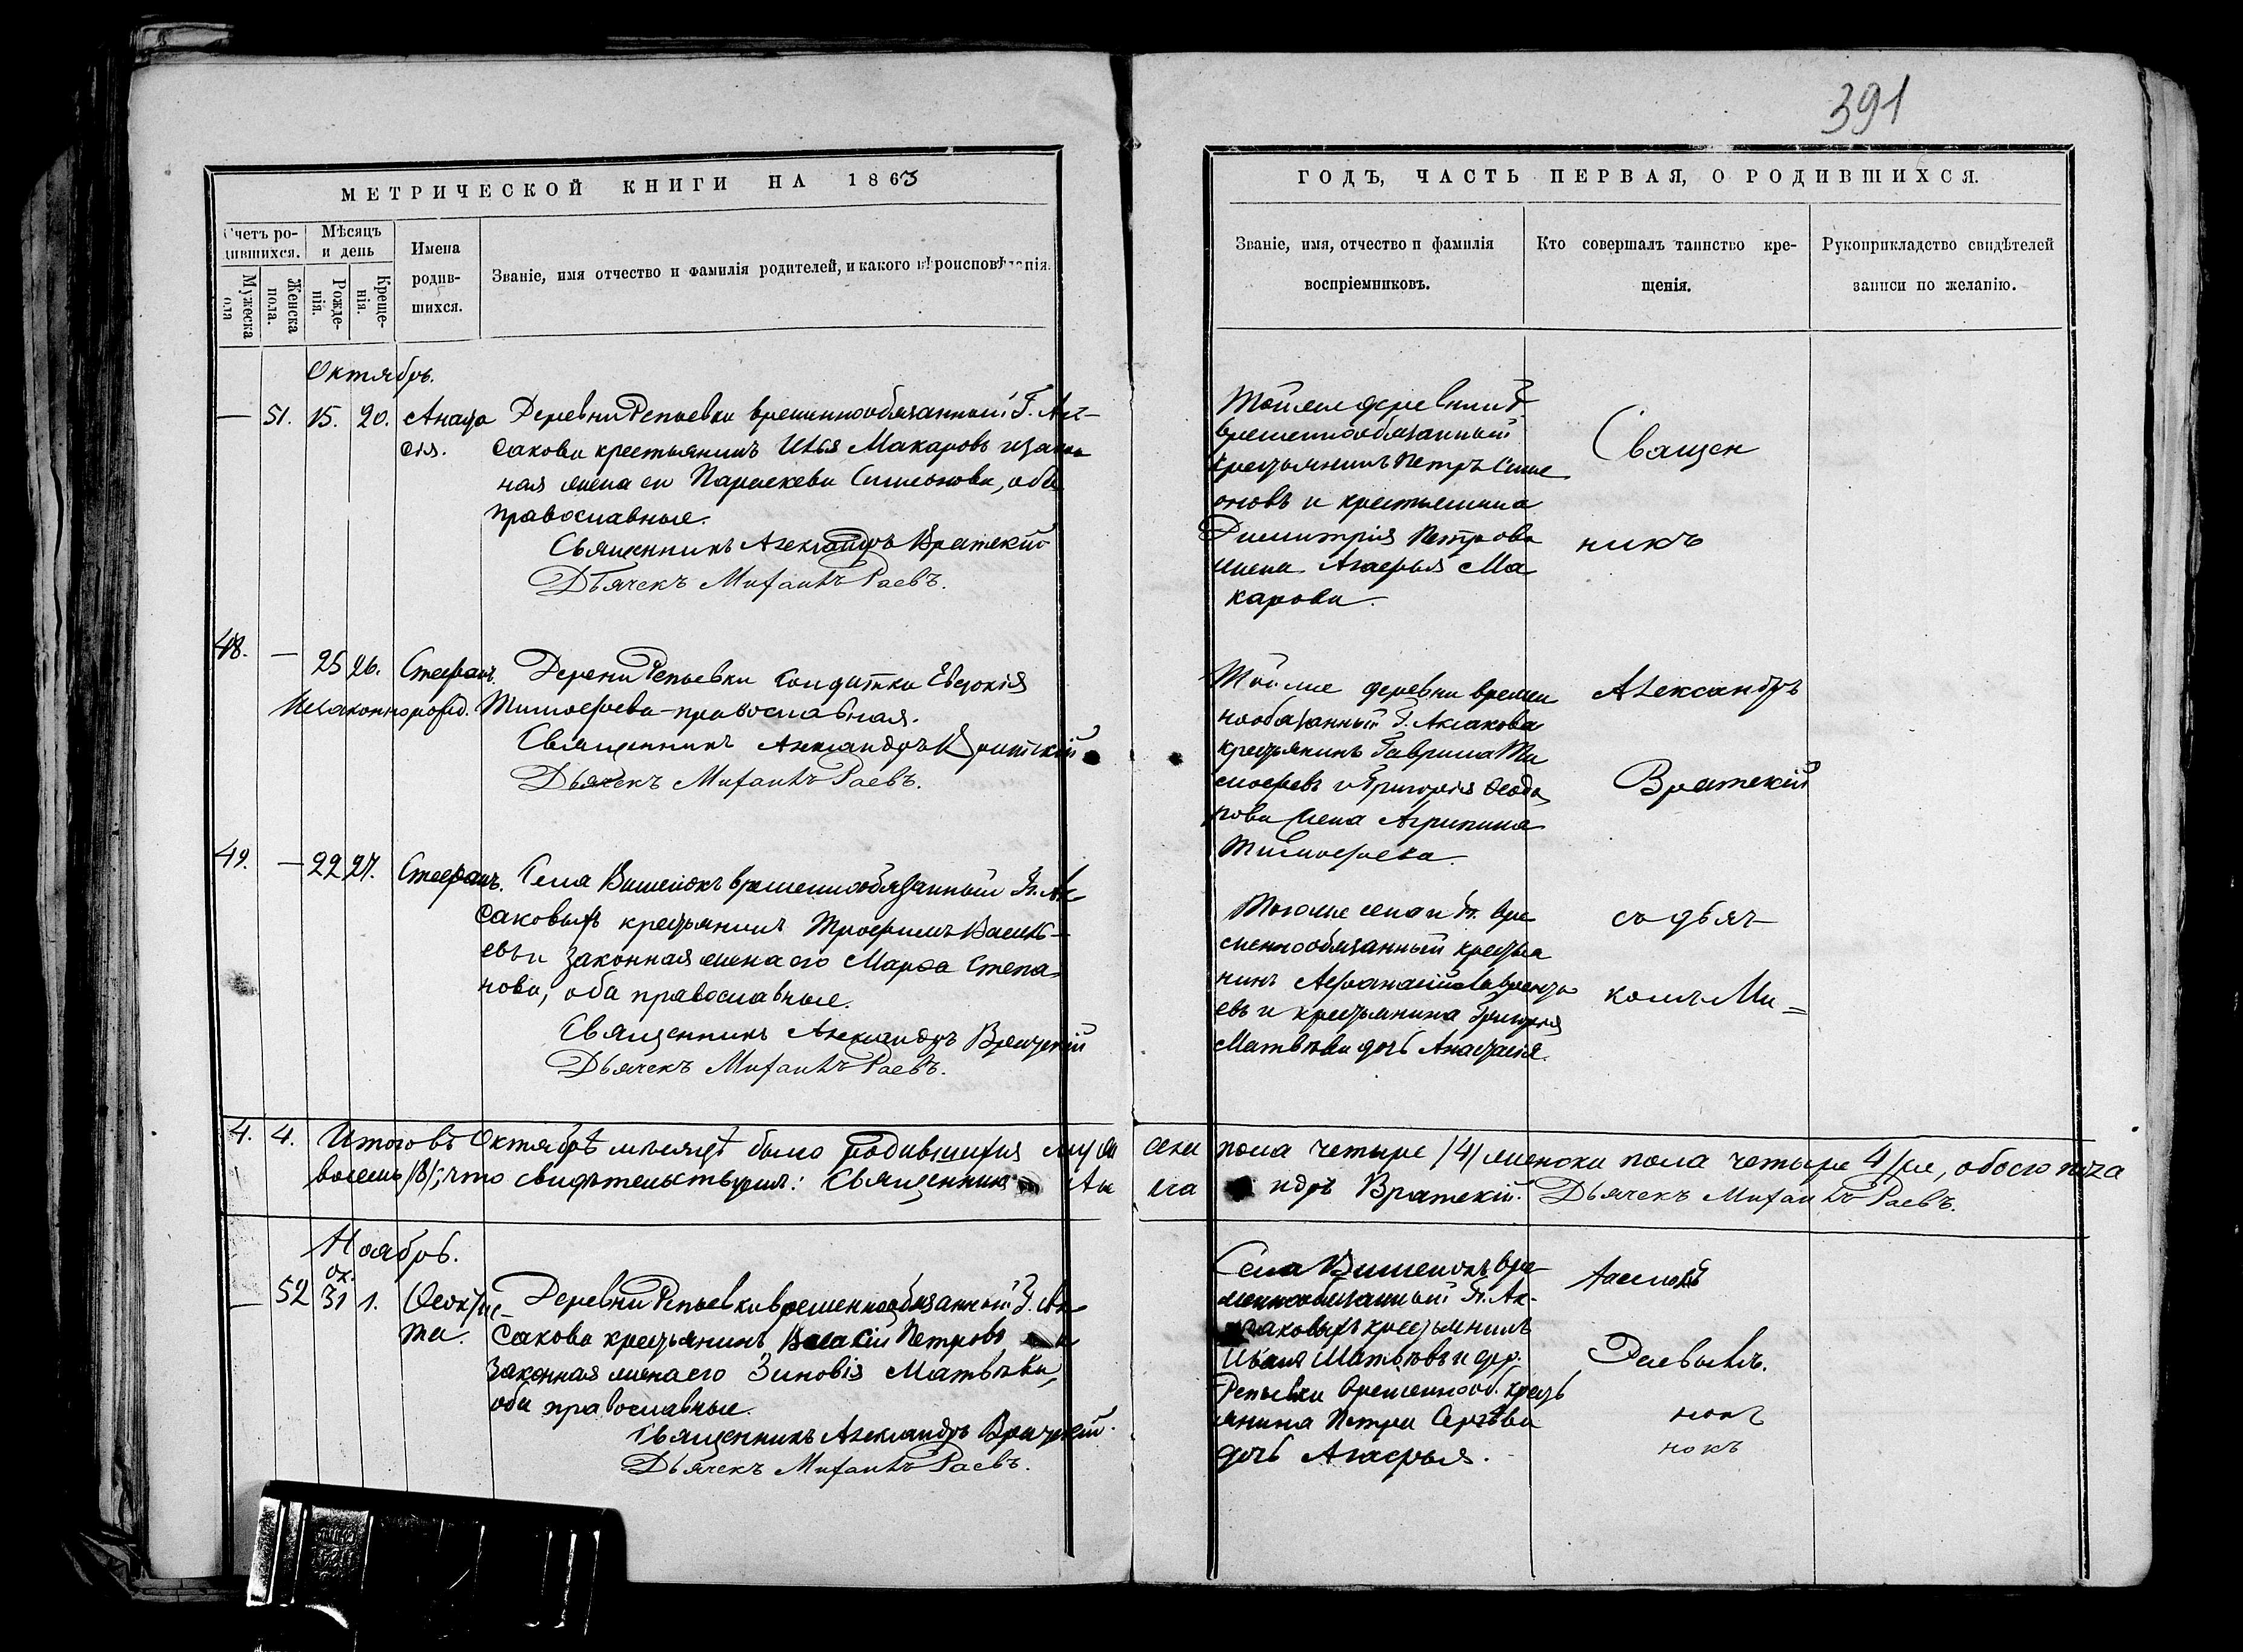 391
МЕТРИЧЕСКОЙ КНИГИ НА 1863
ГОДЪ, ЧАСТЬ ПЕРВАЯ, О РОДИВШИХСЯ.
Счетъ ро-
дившихся.
Мужеска
пола
Женска
пола.
Мѣсяцъ
и день
Рожде-
нія.
Креще-
нія.
Имена
родив-
шихся.
Званіе, имя отчество и фамилія родителей, и какого вѣроисповѣданія.
Званіе, имя, отчество и фамилія
воспріемниковъ.
Кто совершалъ таинство кре-
щенія.
Рукоприкладство свидѣтелей
записи по желанію.
Октябрь.
— 51. 15. 20. Анаста
сія.
Деревни Репьевки временнообязанный Г. Ак-
сакова крестьянинъ Илья Макаровъ и закон
ная жена ею Параскева Симеонова, оба
православные.
Священникъ Александръ Вратскій
Дьячекъ Михаилъ Раевъ.
Тойже деревни Г.
временнообязанный
крестьянинъ Петръ Симе
оновъ и крестьянина
Димитрія Петрова
жена Агафья Ма
карова.
Священ
никъ
48. — 25 26. Стефанъ.
Незаконнорожд.
Дерени Репьевки солдатка Евдокія
Тимофеева православная.
Священникъ Александръ Вратскій
Дьячекъ Михаилъ Раевъ.
Тойже деревни времен
нообязанный Г. Аксакова
крестьянинъ Гаврила Ти
мофеевъ и Григорія Феодо
рова жена Агрипина
Тимофеева.
Александръ
Вратскій
49. — 22 27. Стефанъ.
Села Вишенокъ временнообязанный Гг. Ак
саковыхъ крестьянинъ Трофимъ Василь-
евъ и законная жена его Марфа Степа-
нова, оба православные.
Священникъ Александръ Вратскій
Дьячекъ Михаилъ Раевъ.
Тогоже села и Гг. вре
меннообязанный крестья
нинъ Афанасій Лаврентьо
евъ и крестьянина Григорія
Матвѣева дочь Анастасія.
съ дьяч-
комъ Ми=
4. 4. Итого въ Октябрѣ мѣсяцѣ было родившихся муж
ска пола четыре /4/ женска пола четыре 4/ре, обоего пола
восемь /8/; что свидѣтельствуемъ: Священникъ Але
кса ндръ Вратскій. Дьячекъ Михаилъ Раевъ.
Ноябрь.
ок.
— 52 31 1. Феокти-
ста.
Деревни Репьевки временнообязанный Г. Ак
сакова крестьянинъ Василій Петровъ и
законная жена его Зиновія Матвѣева,
оба православные.
Священникъ Александръ Вратскій.
Дьячекъ Михаилъ Раевъ.
Села Вишенокъ вре
меннообязанный Гг. Ак-
саковыхъ крестьянинъ
Илья Матвѣевъ и дер.
Репьевки временнооб. кресть
янина Петра Сергѣева
дочь Агафья.
Раевымъ.